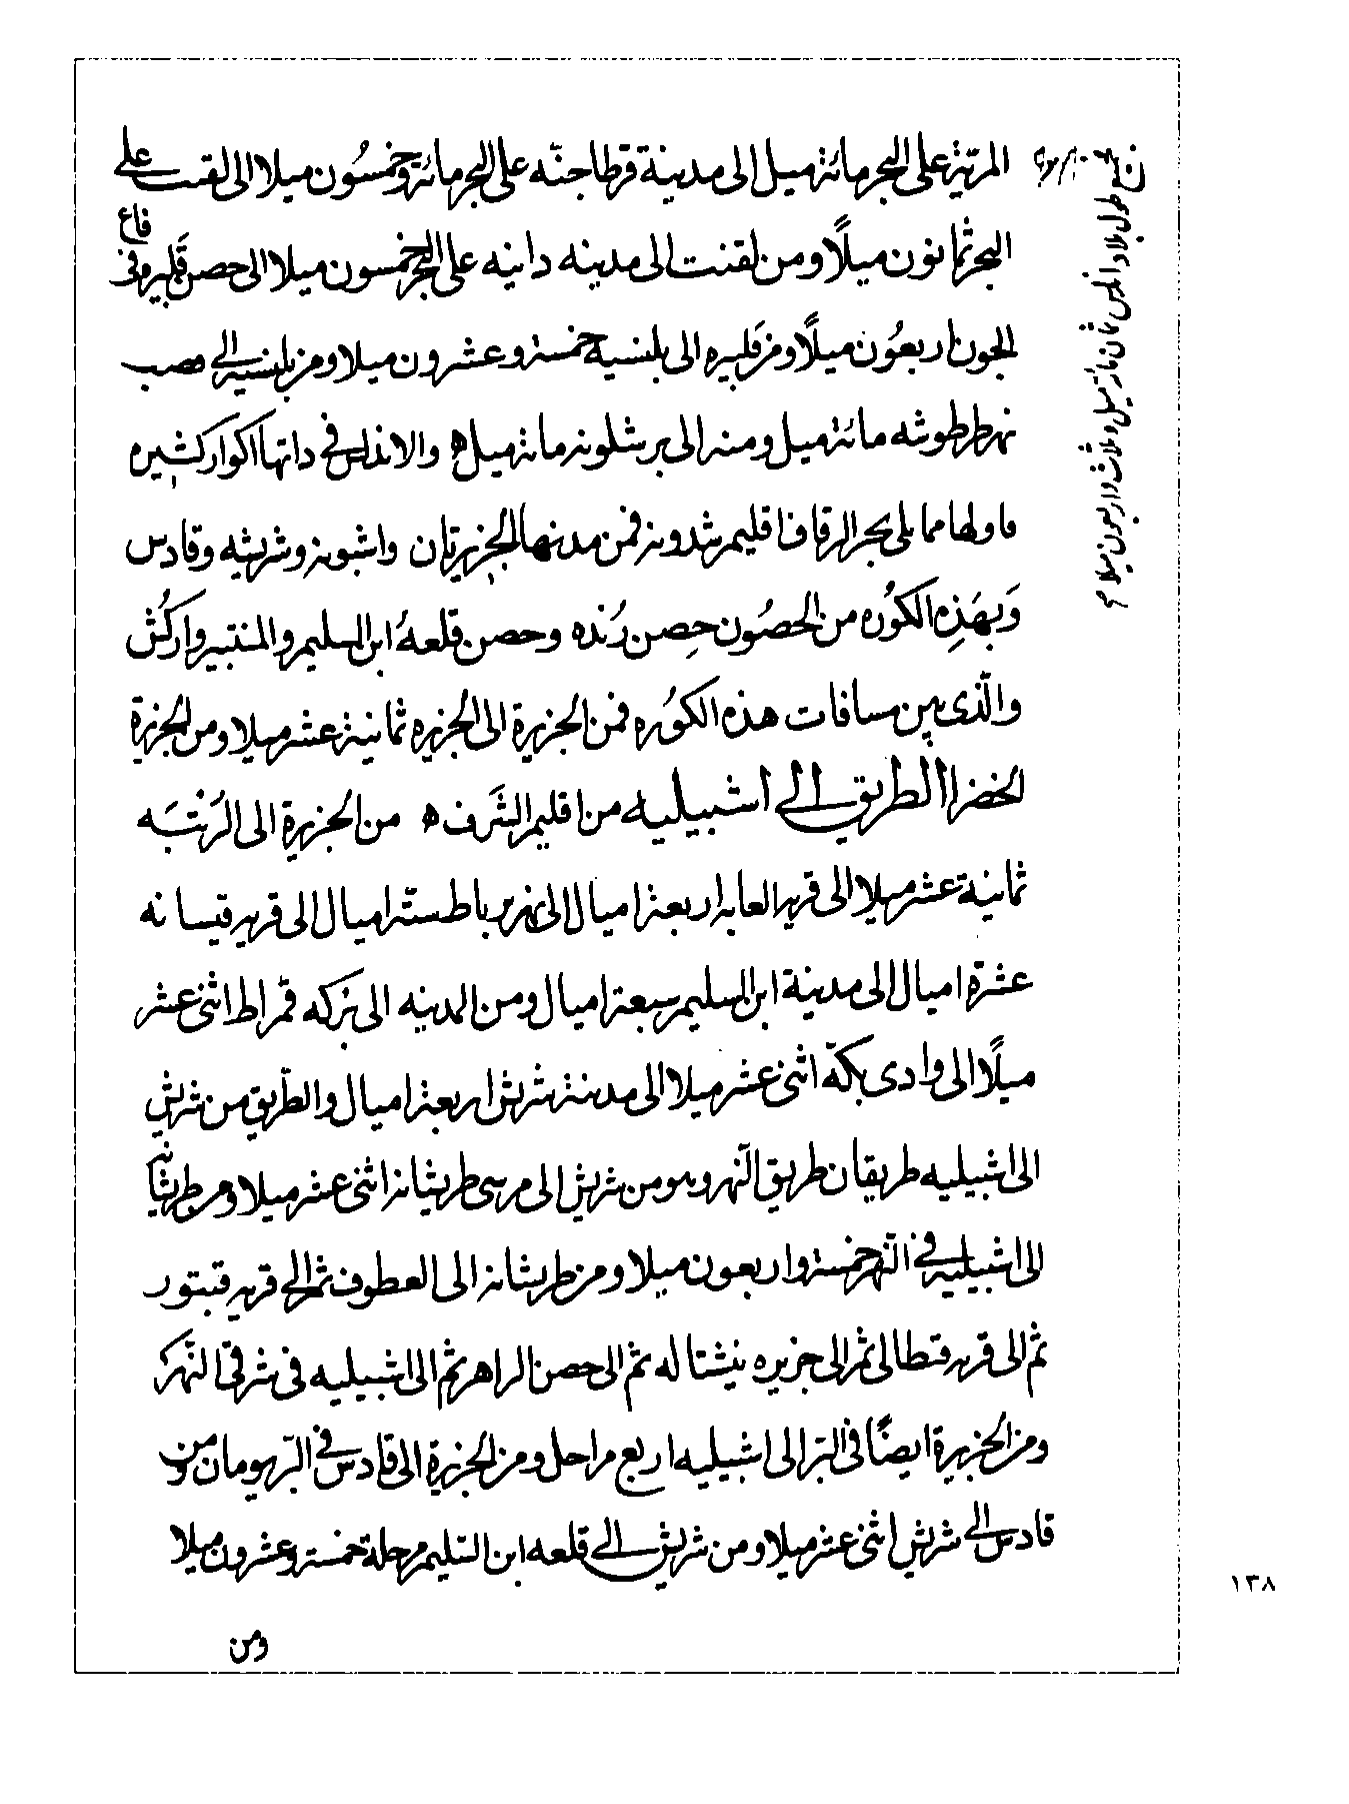 المريّة على البحر مائة ميل الى مدينة قرطاجنّه على البحر مائة وخمسُون ميلا الى لقنت على
البحر ثمانون ميلًا ومن لقنت الى مدينه دانيه على البحر خمسون ميلا الى حصن قَلبيره فى قاع
الجون اربعُون ميلًا ومن قَلبيره الى بلنسيه خمسة وعشرون ميلا ومن بلنسيه الى مصب
نهر طرطوشه مائة ميل ومنه الى برشلونه مائة ميل ه والاندلس فى داتها اكوار كثيره
فاولها مما يلى بحر الزقاق اقليم شدونه فمن مدنها الجزيرتان واشبونه وشريشه وقادس
وَبهَذِه الكوُره من الحصُون حِصن رُنده وحصن قلعهُ ابن السليم والمنتبير واركُش
والّذى بين مسافات هذه الكوُره فمن الجزيرة الى الجزيره ثمانية عشر ميلا ومن الجزيرة
الخضرا الطريق الى اشبيليه من اقليم الشَرف ه من الجزيرة الى الرُتبَه
ثمانية عشر ميلا الى قريه العابه اربعة اميال الى نهر برباط ستّة اميال الى قريه قيسانه
عشرة اميال الى مدينة ابن السليم سبعة اميال ومن المدينه الى بَركه قمّراط اثنى عشر
ميلًا الى وادى بكّه اثنى عشر ميلا الى مدينة شريش اربعة اميال والطّريق من شريش
الى اشبيليه طريقان طريق النّهر وهو من شريش الى مرسى طربشانه اثنى عشر ميلا ومن طربشانه
الى اشبيليه فى النّهر خمسة واربعون ميلا ومن طربشانه الى العطوف ثم الى قريه قبتور
ثم الى قريه قبطال ثم الى جزيره نيشتاله ثم الى حصن الزاهر ثم الى اشبيليه فى شرقى النّهر
ومن الجزيرة ايضًا فى البّر الى اشبيليه اربع مراحل ومن الجزيرة الى قادس فى البّر يومان ومن
قادس الى شريش اثنى عشر ميلا ومن شريش الى قلعه ابن السّليم مرحلة خمسة وعشرون ميلا
ومن
طول بلاد اندلس ثمان مائة ميل وثلاث واربعون ميلا م
١٣٨